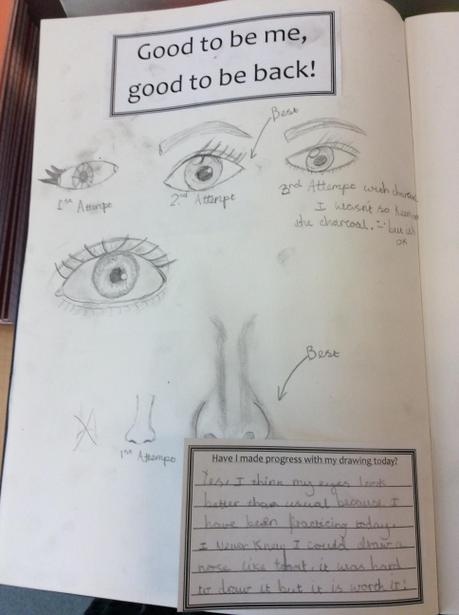 Good to be me,
good to be back!
Best
1st Attempt
2nd Attempt
3rd Attempt with charcoal
I wasn't so keen on
the charcoal. :- but it's
OK
Best
1st Attempt
Have I made progress with my drawing today?
Yes, I think my eyes look
better than usual because I
have been practicing today.
I never knew I could draw a
nose like that, it was hard
to draw it but it is worth it!